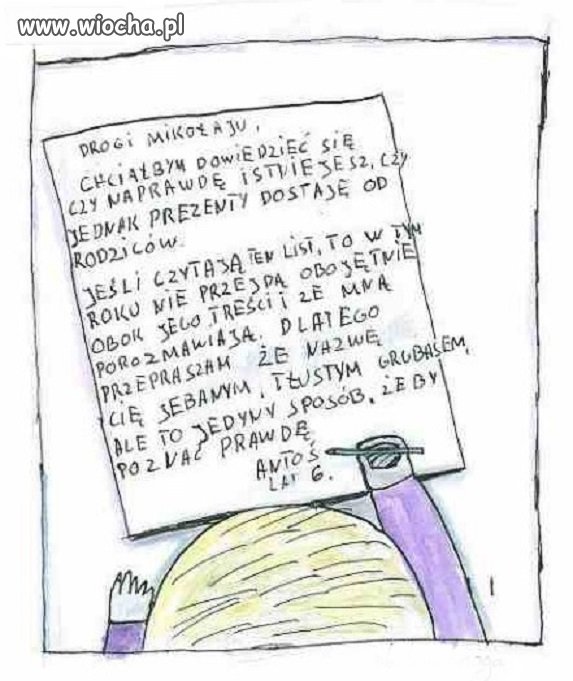 www.wiocha.pl
DROGI MIKOŁAJU,
CHCIAŁBYM DOWIEDZIEĆ SIĘ
CZY NAPRAWDĘ ISTNIEJESZ, CZY
JEDNAK PREZENTY DOSTAJĘ OD
RODZICÓW.
JEŚLI CZYTAJĄ TEN LIST, TO W TYM
ROKU NIE PRZEJDĄ OBOJĘTNIE
OBOK JEGO TREŚCI I ZE MNĄ
POROZMAWIAJĄ. DLATEGO
PRZEPRASZAM ŻE NAZWĘ
CIĘ JEBANYM, TŁUSTYM GRUBASEM,
ALE TO JEDYNY SPOSÓB, ŻEBY
POZNAĆ PRAWDĘ
ANTOŚ
LAT 6.